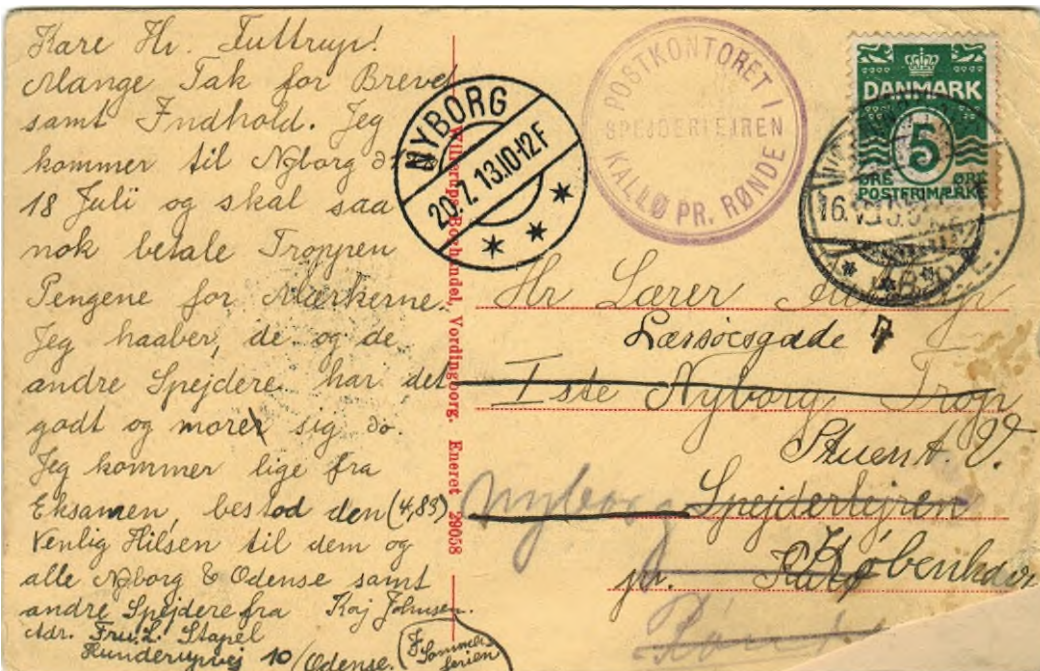 Kære Hr. Tuttrup!
Mange Tak for Brevet
samt Indhold. Jeg
kommer til Nyborg d.
18 Juli og skal saa
nok betale Troppen
Pengene for Mærkerne.
Jeg haaber, de og de
andre Spejdere har det
godt og morer sig do.
Jeg kommer lige fra
Eksamen, bestod den (4,83)
Venlig Hilsen til dem og
alle Nyborg & Odense samt
andre Spejdere fra Kaj Johnsen.
Adr. Fru L. Stapel
Hunderupvej 10/Odense. (I Sommerferien)
Willerups Boghandel, Vordingborg. Eneret 29058
NYBORG
20.7.13.10-12F
POSTKONTORET I
SPEJDERLEJREN
KALLØ PR. RØNDE
DANMARK
5
ØRE ØRE
POSTFRIMÆRKE
16.
Hr Lærer
Læssøesgade 7
Iste Nyborg Trop
Stuen t. V.
Nyborg Spejderlejren
København
pr.